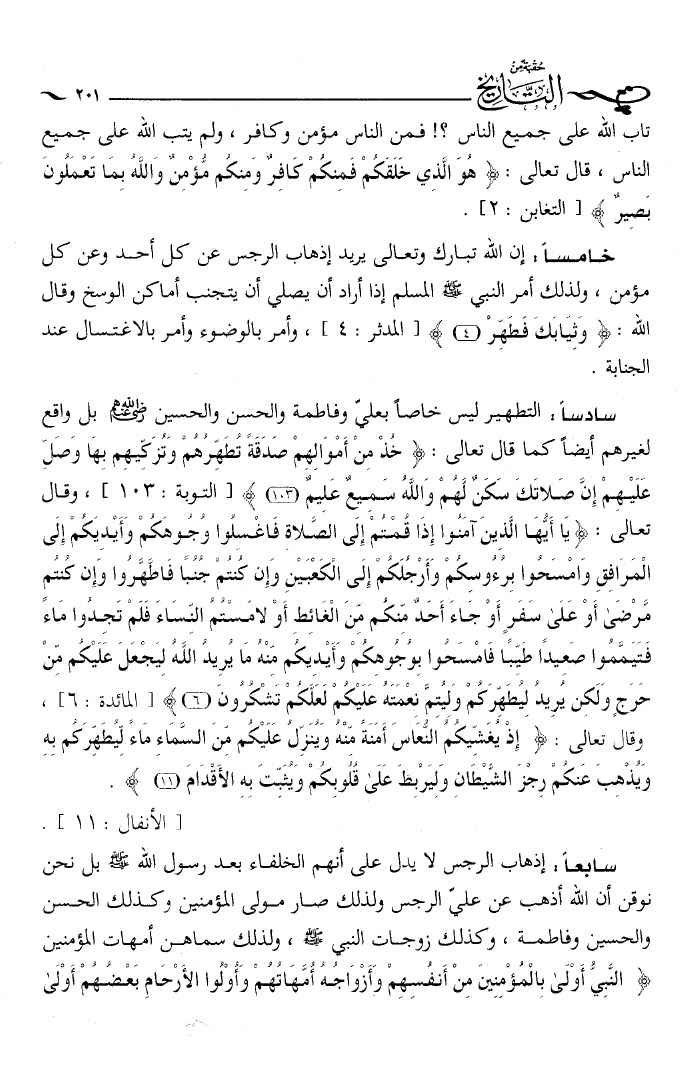 حقبة من
التاريخ
٢٠١
تاب الله على جميع الناس ؟! فمن الناس مؤمن وكافر ، ولم يتب الله على جميع
الناس ، قال تعالى : ﴿ هُوَ الَّذِي خَلَقَكُمْ فَمِنكُمْ كَافِرٌ وَمِنكُم مُّؤْمِنٌ وَاللَّهُ بِمَا تَعْمَلُونَ
بَصِيرٌ ﴾ [ التغابن : ٢] .
خامساً : إن الله تبارك وتعالى يريد إذهاب الرجس عن كل أحد وعن كل
مؤمن ، ولذلك أمر النبي ﷺ المسلم إذا أراد أن يصلي أن يتجنب أماكن الوسخ وقال
الله : ﴿ وَثِيَابَكَ فَطَهِّرْ (٤) ﴾ [ المدثر : ٤ ] ، وأمر بالوضوء وأمر بالاغتسال عند
الجنابة .
سادساً : التطهير ليس خاصاً بعليّ وفاطمة والحسن والحسين رضي الله عنهم بل واقع
لغيرهم أيضاً كما قال تعالى : ﴿ خُذْ مِنْ أَمْوَالِهِمْ صَدَقَةً تُطَهِّرُهُمْ وَتُزَكِّيهِم بِهَا وَصَلِّ
عَلَيْهِمْ إِنَّ صَلاتَكَ سَكَنٌ لَّهُمْ وَاللَّهُ سَمِيعٌ عَلِيمٌ (١٠٣) ﴾ [ التوبة : ١٠٣ ] ، وقال
تعالى : ﴿ يَا أَيُّهَا الَّذِينَ آمَنُوا إِذَا قُمْتُمْ إِلَى الصَّلاةِ فَاغْسِلُوا وُجُوهَكُمْ وَأَيْدِيَكُمْ إِلَى
الْمَرَافِقِ وَامْسَحُوا بِرُءُوسِكُمْ وَأَرْجُلَكُمْ إِلَى الْكَعْبَيْنِ وَإِن كُنتُمْ جُنُبًا فَاطَّهَّرُوا وَإِن كُنتُم
مَّرْضَىٰ أَوْ عَلَىٰ سَفَرٍ أَوْ جَاءَ أَحَدٌ مِّنكُم مِّنَ الْغَائِطِ أَوْ لامَسْتُمُ النِّسَاءَ فَلَمْ تَجِدُوا مَاءً
فَتَيَمَّمُوا صَعِيدًا طَيِّبًا فَامْسَحُوا بِوُجُوهِكُمْ وَأَيْدِيكُم مِّنْهُ مَا يُرِيدُ اللَّهُ لِيَجْعَلَ عَلَيْكُم مِّنْ
حَرَجٍ وَلَكِن يُرِيدُ لِيُطَهِّرَكُمْ وَلِيُتِمَّ نِعْمَتَهُ عَلَيْكُمْ لَعَلَّكُمْ تَشْكُرُونَ (٦) ﴾ [ المائدة : ٦] ،
وقال تعالى : ﴿ إِذْ يُغَشِّيكُمُ النُّعَاسَ أَمَنَةً مِّنْهُ وَيُنَزِّلُ عَلَيْكُم مِّنَ السَّمَاءِ مَاءً لِّيُطَهِّرَكُم بِهِ
وَيُذْهِبَ عَنكُمْ رِجْزَ الشَّيْطَانِ وَلِيَرْبِطَ عَلَىٰ قُلُوبِكُمْ وَيُثَبِّتَ بِهِ الأَقْدَامَ (١١) ﴾ .
[ الأنفال : ١١ ] .
سابعاً : إذهاب الرجس لا يدل على أنهم الخلفاء بعد رسول الله ﷺ بل نحن
نوقن أن الله أذهب عن عليّ الرجس ولذلك صار مولى المؤمنين وكذلك الحسن
والحسين وفاطمة ، وكذلك زوجات النبي ﷺ ، ولذلك سماهن أمهات المؤمنين
﴿ النَّبِيُّ أَوْلَىٰ بِالْمُؤْمِنِينَ مِنْ أَنفُسِهِمْ وَأَزْوَاجُهُ أُمَّهَاتُهُمْ وَأُوْلُوا الأَرْحَامِ بَعْضُهُمْ أَوْلَىٰ